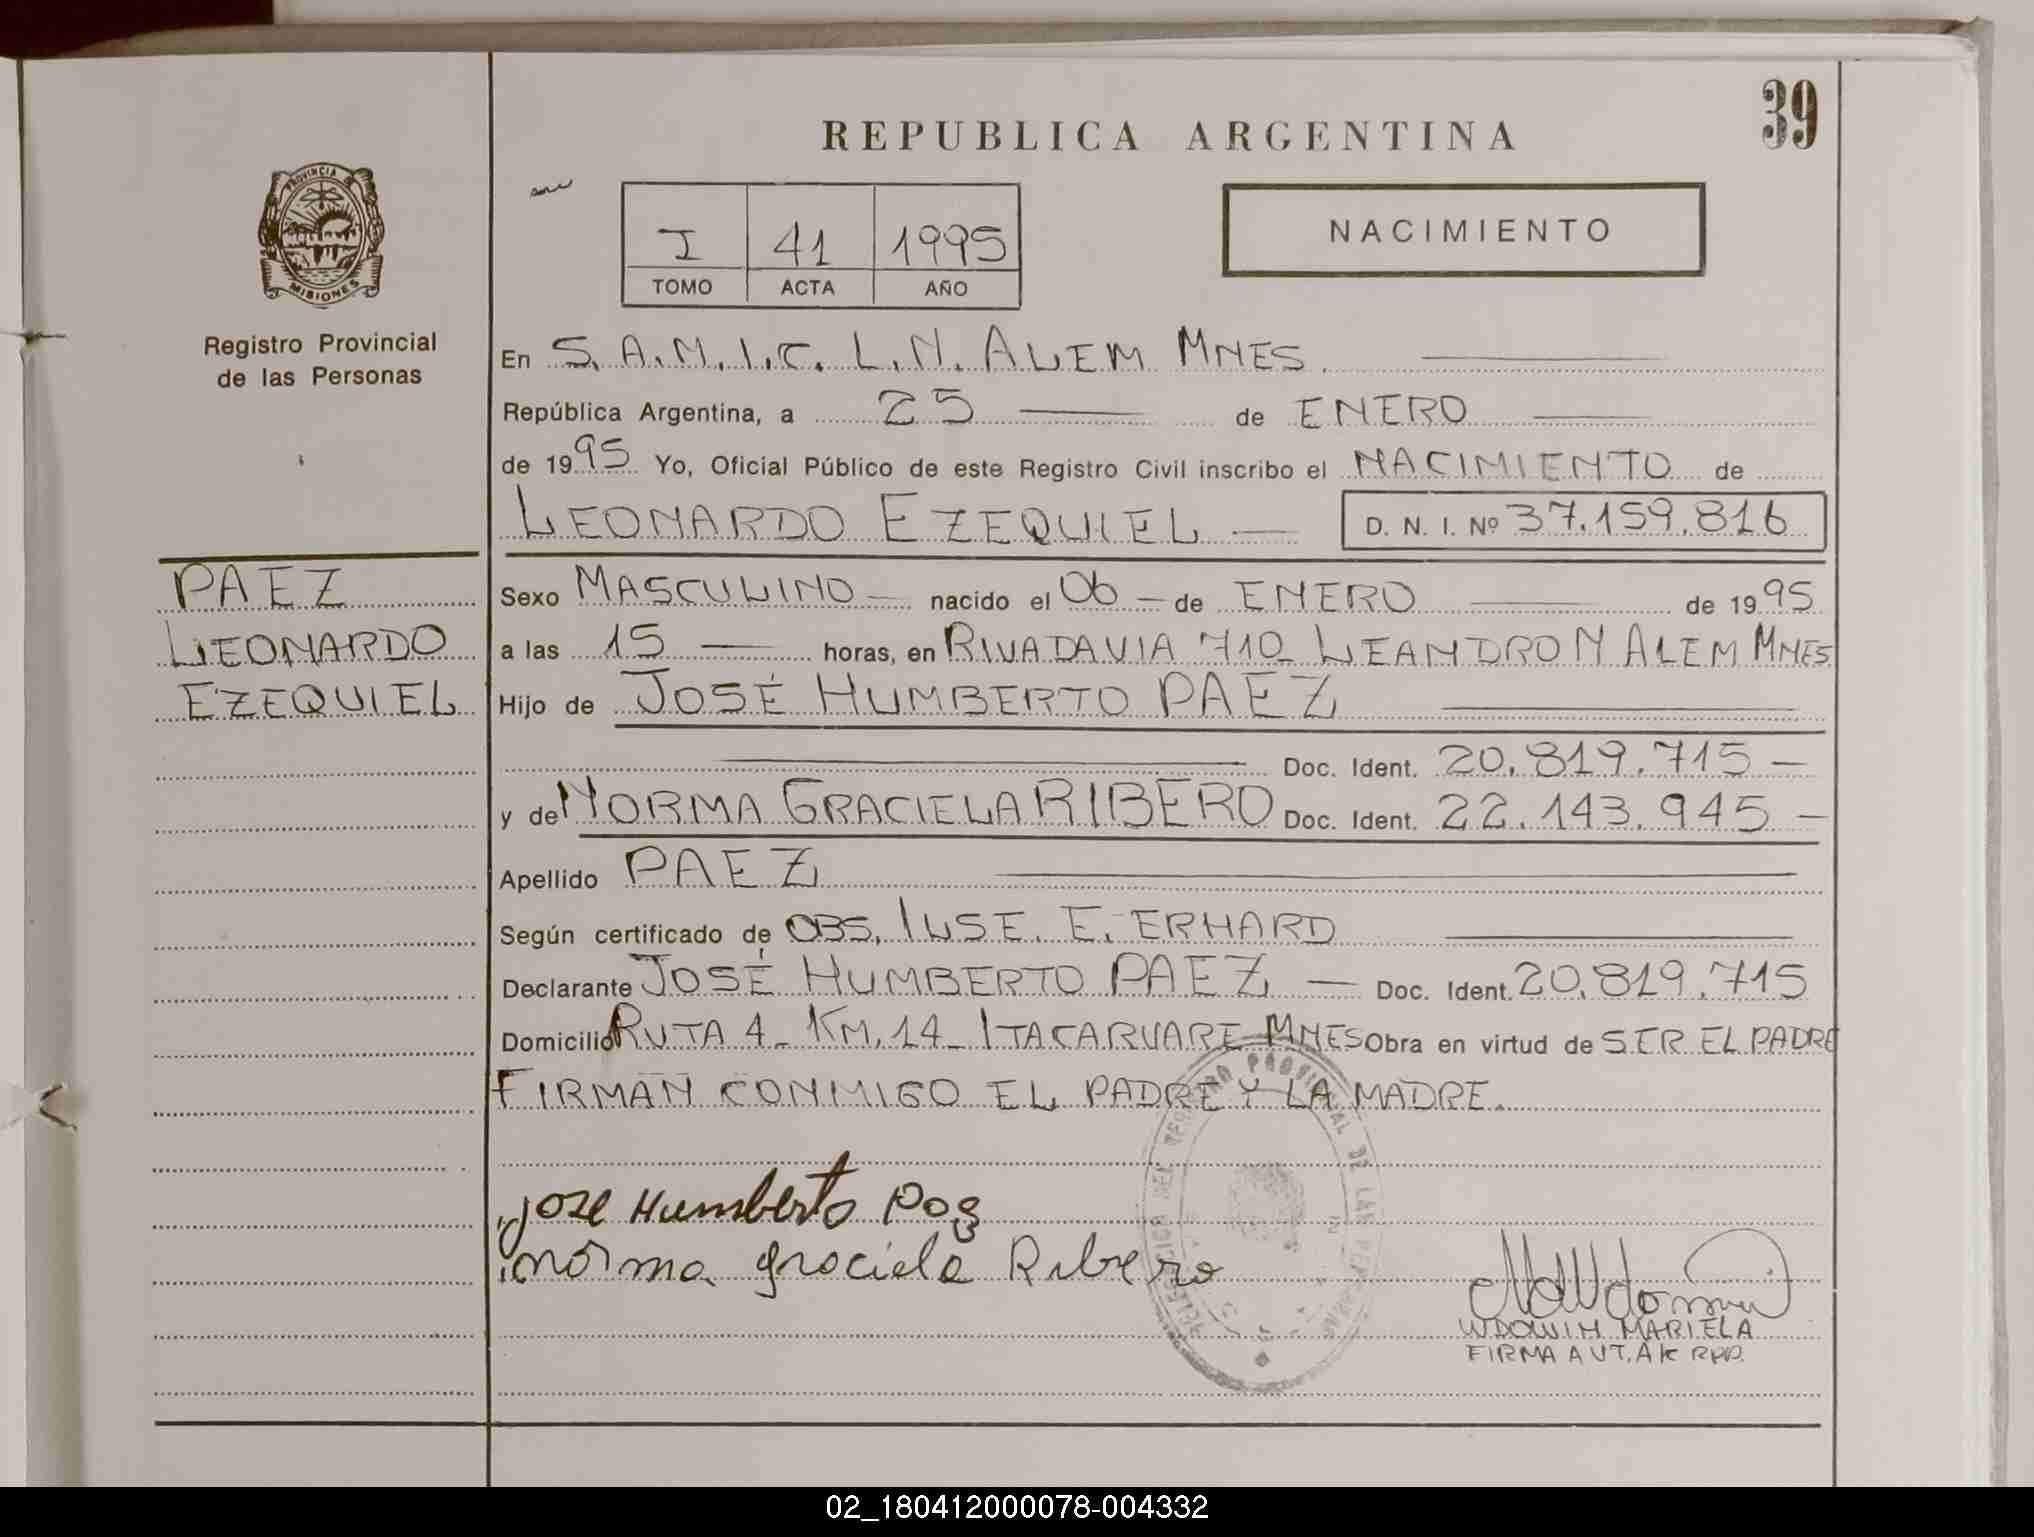 39
REPUBLICA ARGENTINA
PROVINCIA DE
MISIONES
I 41 1995
TOMO ACTA AÑO
NACIMIENTO
Registro Provincial
de las Personas
En S.A.M.I.C. L.N. ALEM MNES.
República Argentina, a 25 de ENERO
de 1995 Yo, Oficial Público de este Registro Civil inscribo el NACIMIENTO de
LEONARDO EZEQUIEL D. N. I. Nº 37.159.816
PAEZ
LEONARDO
EZEQUIEL
Sexo MASCULINO nacido el 06 de ENERO de 1995
a las 15 horas, en RIVADAVIA 710 LEANDRO N ALEM MNES
Hijo de JOSÉ HUMBERTO PAEZ
Doc. Ident. 20.819.715
y de NORMA GRACIELA RIBERO Doc. Ident. 22.143.945
Apellido PAEZ
Según certificado de OBS. ILSE. E. ERHARD
Declarante JOSÉ HUMBERTO PAEZ Doc. Ident. 20.819.715
Domicilio RUTA 4 - KM. 14 - ITACARUARE MNES Obra en virtud de SER EL PADRE
FIRMAN CONMIGO EL PADRE Y LA MADRE.
PROVINCIAL DE LAS PERSONAS
Jose Humberto
norma graciela Ribero
WDOWIN MARIELA
FIRMA AUT. A/C RPP.
02_180412000078-004332